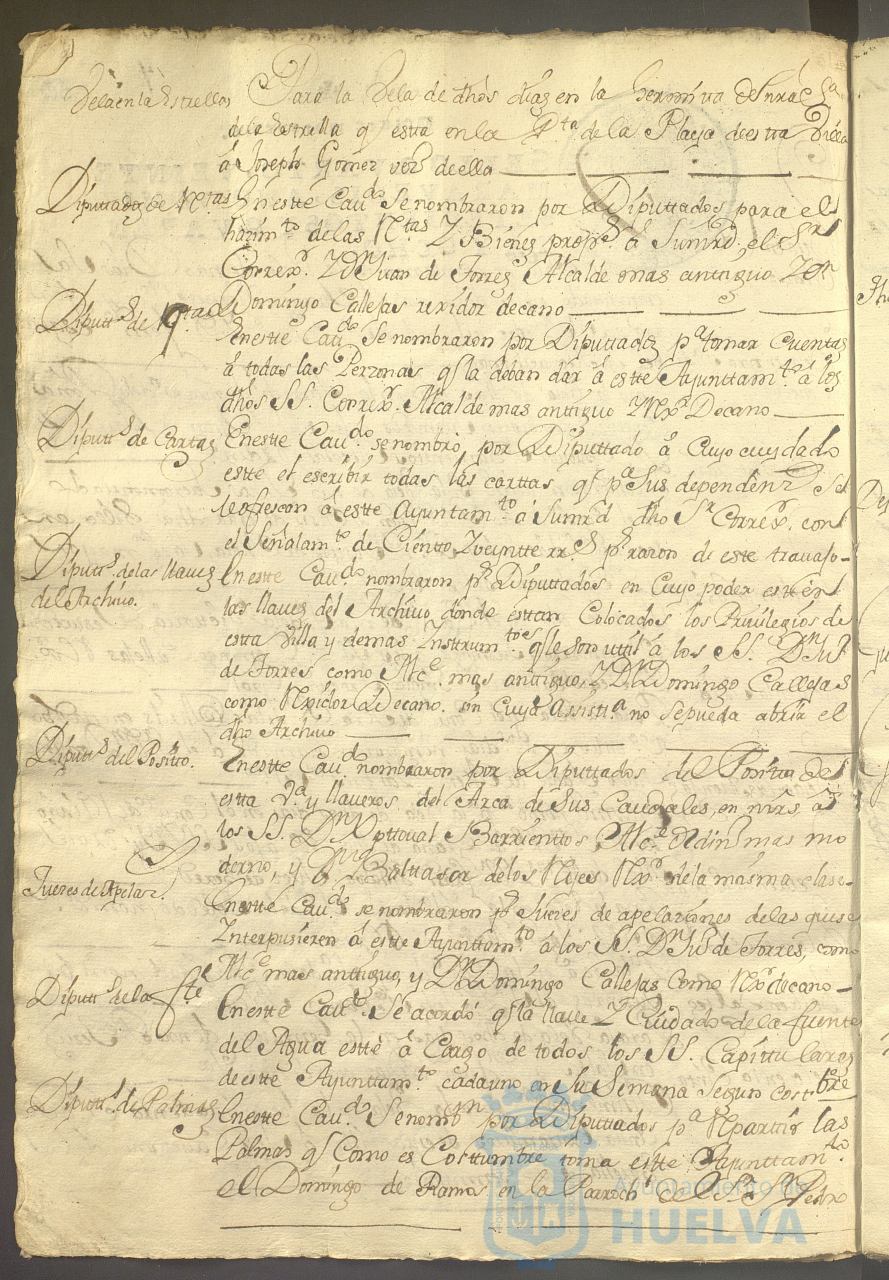 Dela en la Estrella
Para la Vela de dhos dias en la hermita de Nra Sª
de la Estrella qe esta en la Pta de la Plaza de esta Villa
á Joseph Gomez vezº de ella
Diputtados de Rtas
En este Cavdo Se nombraron por Diputtados para el
hazimto de las Rtas Y Bienes propºs á Sumrd el Sr
Correxr Y Dn Juan de Torres Alcalde mas antiguo Y Dn
Domingo Callejas rexidor decano
Diputtds de qtas
En este Cavdo Se nombraron por Diputtados pª tomar Cuentas
á todas las Perzonas qe la deban dar á este Ayunttamto á los
dhos SS. Correxr Alcalde mas antiguo Y Rxr Decano
Diputtds de Carttas
En este Cavdo se nombró por Diputtado á Cuyo cuydado
este el escribir todas las carttas qe pª Sus dependenz Se
le ofrescan á este Ayuntamto á Sumrd dho Sr Correxr con
el Señalamto de Ciento Y veyntte rrs pr razon de este travajo
Diputtds de las llaves
del Archivo.
En este Cavdo nombraron pr Diputtados en Cuyo poder esten
las llaves del Archivo donde esttan Colocados los Privilegios de
esta Villa y demas Ynsttrumtos qe le son uttil á los SS. Dn Jun
de Torres como Alce mas antiguo, Y Dn Domingo Callejas
como Rxidor Decano sin Cuya Assistª no se pueda abrir el
dho Archivo
Diputtds del Posito.
En este Cavdo nombraron por Diputtados del Posito de
esta Vª y llaveros del Arca de Sus Caudales, en mrs á
los SS. Dn Xpttoval Barrienttos Alce Ordino mas mo
derno, y Dn Balttasar de los Reyes Rxr de la misma clase
Juezes de Apelaz.
En este Cavdo se nombraron pr Juezes de apelaziones de las que se
Ynterpusieren á este Ayunttamto á los SS. Dn Jun de Torres, como
Alce mas anttiguo, y Dn Domingo Callejas como Rxr decano
Diputtds de la fte
En este Cavdo Se acordó qe la llave Y Cuidado de la fuente
del Agua este á Cargo de todos los SS. Capittulares
de este Ayunttamto cada uno en Su Semana Segun costbre
Diputtds de Palmas
En este Cavdo Se nombron por Diputtados pª Rpartir las
Palmas qe Como es Costtumbre toma este Ayunttamto
el Domingo de Ramos en la Parrochª de Sr Sn Pedro
Ayuntamiento de
HUELVA